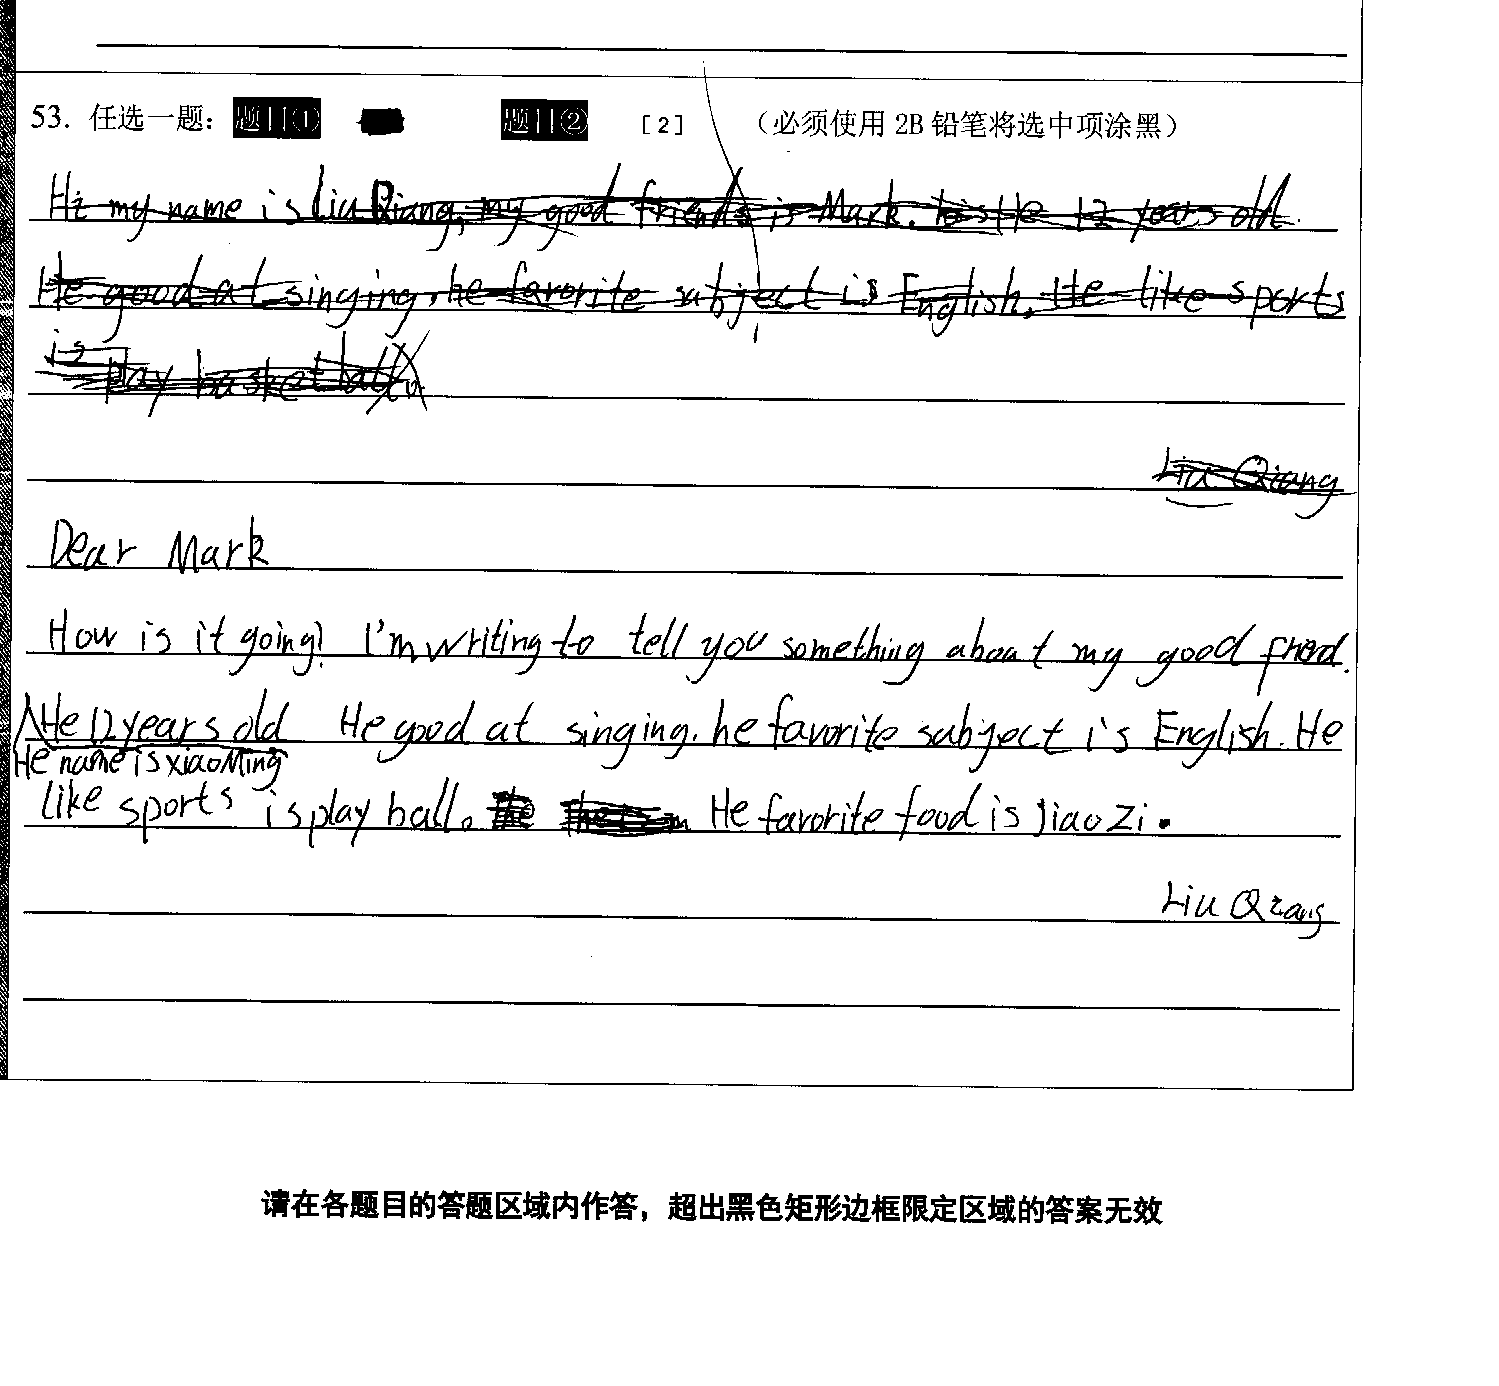 53. 任选一题： 题目① 题目② [2] （必须使用 2B 铅笔将选中项涂黑）
Hi my name is Liu Qiang, my good friends is Mark. He 12 years old.
He good at singing, he favorite subject is English. He like sports
is play basketball
Liu Qiang
Dear Mark
How is it going? I'm writing to tell you something about my good friend.
He 12 years old He good at singing. he favorite subject is English. He
He name is xiaoMing
like sports is play ball. He favorite food is Jiao Zi.
Liu Qiang
请在各题目的答题区域内作答，超出黑色矩形边框限定区域的答案无效